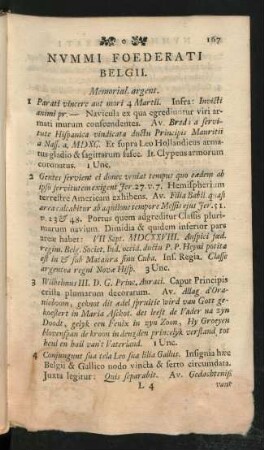 167
NVMMI FOEDERATI
BELGII.
Memorial. argent.
1 Parati vincere aut mori 4 Martii. Infra: Invicti
animi pr. — Navicula ex qua egrediuntur viri ar-
mati murum conscendentes. Av. Breda a servi-
tute Hispanica vindicata ductu Principis Mauritii
a Nass. a. MDXC. Et supra Leo Hollandicus arma-
tus gladio & sagittarum fasce. It. Clypeus armorum
coronatus. 1 Unc.
2 Gentes servient ei donec veniat tempus quo eadem ab
ipso servitutem exigent Jer. 27. v. 7. Hemisphærium
terrestre American exhibens. Av. Filia Babil. quasi
area calcabitur ab aquilone tempore Messis ejus Jer. 51.
v. 23 & 48. Portus quem aggreditur Classis pluri-
marum navium. Dimidia & quidem inferior pars
aversæ habet: VII Sept. MDCXXVIII. Auspici. fœd.
regim. Belg. Societ. Ind. occid. ductu P. P. Heynii potita
est in & sub Matanca sinu Cuba, Ins. Regia. Classe
argentea regni Novæ Hisp. 3 Unc.
3 Wilhelmus III. D. G. Princ. Aurati. Caput Principis
crista plumarum decoratum. Av. Aldag d'Ora-
nieboom, gehout dit edel spruitje wird van Gott ge-
koestert in Maria Aschot. dit leeft de Vader na zyn
Doodt, gelyk een Fenix in zyn Zoon, Hy Groeyen
Hovenspan de kroon in deugden princelyk verstand, tot
heul en heil van't Vaterland. 1 Unc.
4 Conjungunt sua tela Leo sua lilia Gallus. Insignia hæc
Belgii & Gallico nodo vincta & serto circumdata.
Juxta legitur: Quis separabit. Av. Gedachtenisj
L 4 vant